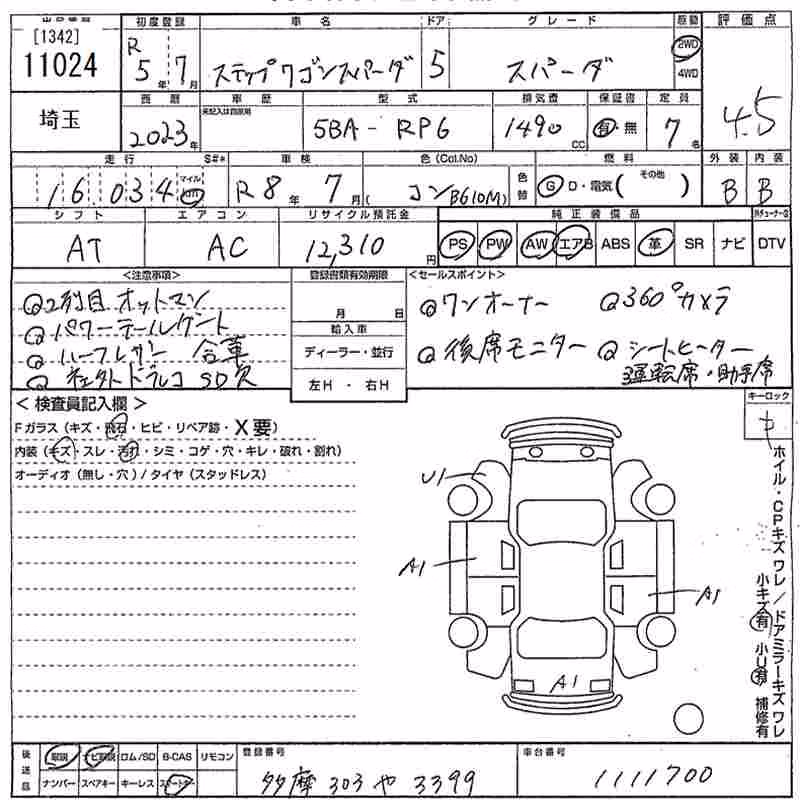 [1342]
11024
初度登録 車名 ドア グレード 原動 評価点
R 5年 7月 ステップワゴンスパーダ 5 スパーダ 2WD 4WD 4.5
埼玉
西暦 車歴 型式 排気量 保証書 定員
未記入は自家用
2023年 5BA-RP6 1490cc 有・無 7名
走行 S#* 車検 色(Col.No) 燃料 外装 内装
16034 マイル km R8年 7月 コン B610M 色替 G D・電気( その他 ) B B
シフト エアコン リサイクル預託金 純正装備品
AT AC 12,310円 PS PW AW エアB ABS 革 SR ナビ DTV
<注意事項> 登録書類有効期限 <セールスポイント>
Q2列目オットマン
Qパワーテールゲート
Qハーフレザー 合革
Q社外ドラレコ SD欠
月 日
輸入車
ディーラー・並行
左H ・ 右H
Qワンオーナー Q360°カメラ
Q後席モニター Qシートヒーター
運転席・助手席
<検査員記入欄>
キーロック
Fガラス(キズ・飛石・ヒビ・リペア跡・X要)
内装(キズ・スレ・汚れ・シミ・コゲ・穴・キレ・破れ・割れ)
オーディオ(無し・穴)/タイヤ(スタッドレス)
U1
A1
A1
A1
ホイル・CPキズ ワレ/ドアミラーキズ ワレ
小キズ有 小U有 補修有
後送品 取説 ナビ取説 ロム/SD B-CAS リモコン
ナンバー スペアキー キーレス スマートキー
登録番号 多摩 303 や 3399
車台番号 1111700